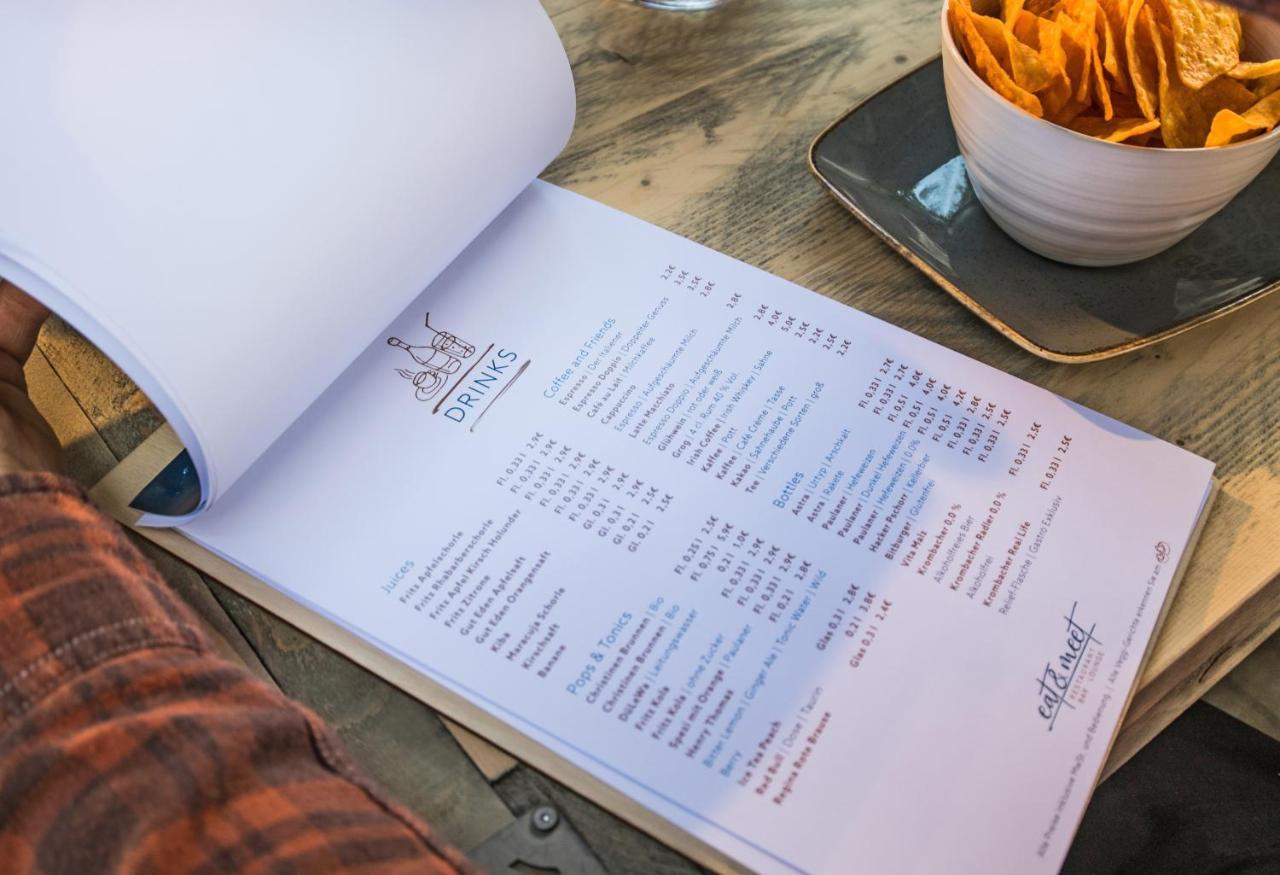 DRINKS
Juices
Fritz Apfelschorle Fl. 0,33 l 2,9€
Fritz Rhabarberschorle Fl. 0,33 l 2,9€
Fritz Apfel Kirsch Holunder Fl. 0,33 l 2,9€
Fritz Zitrone Fl. 0,33 l 2,9€
Gut Eden Apfelsaft Fl. 0,33 l 2,9€
Gut Eden Orangensaft Gl. 0,3 l 2,9€
Kiba Gl. 0,3 l 2,9€
Maracuja Schorle Gl. 0,2 l 2,5€
Kirschsaft Gl. 0,2 l 2,5€
Banane
Pops & Tonics
Christinen Brunnen | Bio Fl. 0,25 l 2,5€
Christinen Brunnen | Bio Fl. 0,75 l 5,9€
DüLeWa | Leitungswasser 0,2 l 1,0€
Fritz Kola Fl. 0,33 l 2,9€
Fritz Kola | ohne Zucker Fl. 0,33 l 2,9€
Spezi mit Orange | Paulaner Fl. 0,33 l 2,9€
Henry Thomas Fl. 0,2 l 2,8€
Bitter Lemon | Ginger Ale | Tonic Water | Wild
Berry
Ice Tea Peach Glas 0,3 l 2,8€
Red Bull | Dose | Taurin 0,2 l 3,8€
Regina Rote Brause Glas 0,3 l 2,4€
Coffee and Friends
Espresso | Der Italiener 2,2€
Espresso Doppio | Doppelter Genuss 3,5€
Café au Lait | Milchkaffee 3,5€
Cappuccino 2,8€
Espresso | Aufgeschäumte Milch
Latte Macchiato 2,8€
Espresso Doppio | Aufgeschäumte Milch
Glühwein | rot oder weiß 2,8€
Grog | 4 cl. Rum 40 % Vol. 4,0€
Irish Coffee | Irish Whiskey | Sahne 5,0€
Kaffee | Pott 2,5€
Kaffee | Café Crème | Tasse 2,2€
Kakao | Sahnehaube | Pott 2,5€
Tee | Verschiedene Sorten | groß 2,2€
Bottles
Astra | Urtyp | Arschkalt Fl. 0,33 l 2,7€
Astra | Rakete Fl. 0,33 l 2,7€
Paulaner | Hefeweizen Fl. 0,5 l 4,0€
Paulaner | Dunkel Hefeweizen Fl. 0,5 l 4,0€
Paulaner | Hefeweizen | 0,0% Fl. 0,5 l 4,0€
Hacker Pschorr | Kellerbier Fl. 0,5 l 4,2€
Bitburger | Glutenfrei Fl. 0,33 l 2,8€
Vita Malz Fl. 0,33 l 2,5€
Krombacher 0,0 % Fl. 0,33 l 2,5€
Alkoholfreies Bier
Krombacher Radler 0,0 % Fl. 0,33 l 2,5€
Alkoholfrei
Krombacher Real Life Fl. 0,33 l 2,5€
Relief-Flasche | Gastro Exklusiv
eat&meet
RESTAURANT
BAR LOUNGE
Alle Preise inklusive MwSt. und Bedienung | Alle Veggi-Gerichte erkennen Sie am